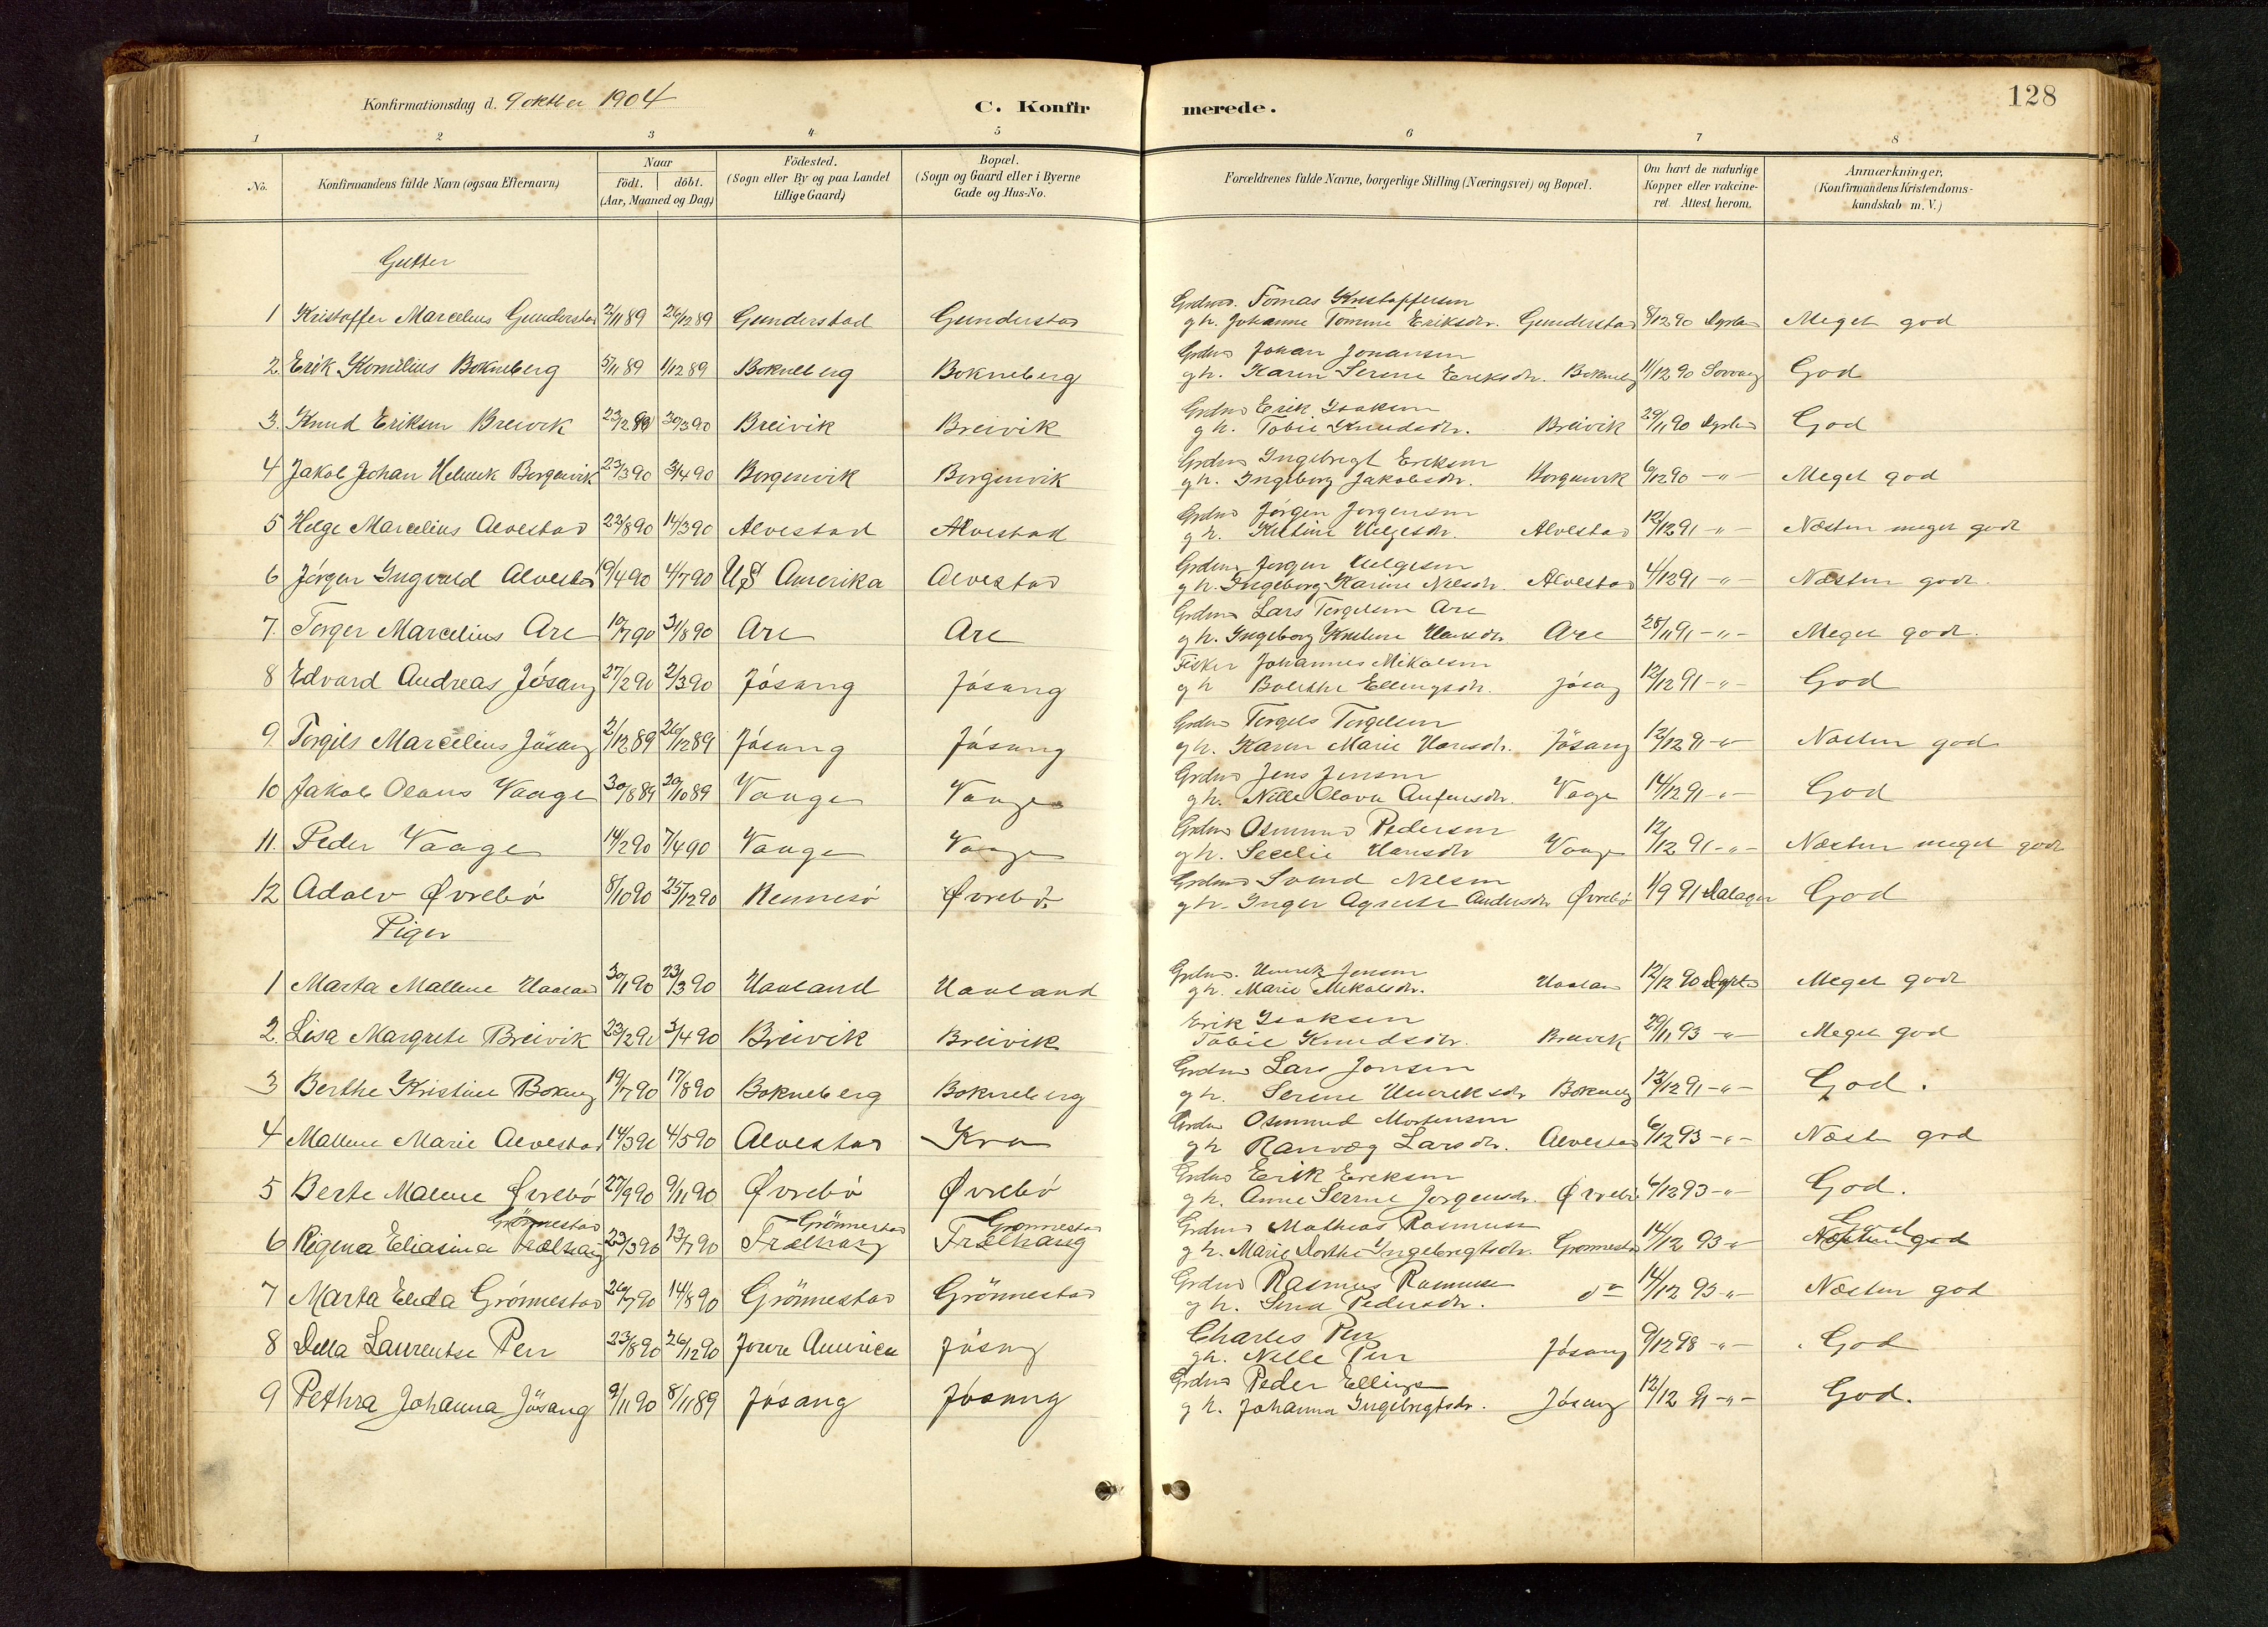 Konfirmationsdag d. 9 oktber 1904
C. Konfirmerede.
128
1 2 3 4 5 6 7 8
No. Konfirmandens fulde Navn (ogsaa Efternavn) Naar födt. döbt. (Aar, Maaned og Dag) Födested. (Sogn eller By og paa Landet tillige Gaard) Bopæl. (Sogn og Gaard eller i Byerne Gade og Hus-No. Forældrenes fulde Navne, borgerlige Stilling (Næringsvei) og Bopæl. Om havt de naturlige Kopper eller vakcineret. Attest herom. Anmærkninger, (Konfirmandens Kristendomskundskab m. V.)
Gutter
Grdm. Tomas Kristoffersen
1 Kristoffer Marcelius Gunderstad 2/11 89 26/12 89 Gunderstad Gunderstad gh. Johanne Tomine Eriksdr. Gunderstad 8/12 90 Meget god
Grdm Johan Johansen
2 Erik Kornilius Bokneberg 5/11 89 1/12 89 Bokneberg Bokneberg gh. Karen Serene Eriksdr. Bokneb 11/12 90 God
Grdm Erik Isaksen
3. Knud Eriksen Breivik 23/2 30/3 90 Breivik Breivik gh. Tobie Knudsdr. Breivik 29/11 90 God
Grdm Ingebregt Eriksen
4 Jakob Johan Helmik Borgenvik 23/3 90 3/4 90 Borgenvik Borgenvik gh. Ingeborg Jakobsdr. Borgenvik 6/12 90 -"- Meget god
Grdm Jörgen Jörgensen
5 Helge Marcelius Alvestad 22/8 90 14/3 90 Alvestad Alvestad gh. Kristine Helgesdr. Alvestad 12/12 91 -"- Næsten meget god
Grdm Jörgen Helgesen
6 Jörgen Ingvald Alvestad 19/4 90 4/7 90 US Amerika Alvestad gh. Ingeborg Karine Nelsdr. Alvestad 4/12 91 -"- Næsten god
Grdm Lars Torgelsen Are
7. Torger Marcelius Are 10/7 90 31/8 90 Are Are gh. Ingeborg Kristine Hansdr. Are 28/11 91 -"- Meget god.
Fisker Johannes Mikalsen
8 Edvard Andreas Jösang 27/2 90 2/3 90 Jösang Jösang gh Bolethe Ellingsdr. Jösang 12/12 91 -"- God
Grdm Torgils Torgilsen
9. Torgils Marcelius Jösang 2/12 89 26/12 89 Jösang Jösang gh. Karen Marie Hansdr. Jösang 12/12 91 -"- Næsten god
Grdm Jens Jensen
10 Jakob Olaus Vaage 30/8 89 20/10 89 Vaage Vaage gh. Nille Olava Vage 14/12 91 -"- God
Grdm Osmund Pedersen
11. Peder Vaage 14/2 90 7/4 90 Vaage Vaage gh. Secelie Hansdr Vaage 12/12 91 -"- Næsten meget god
Grdm Svend Nilsen
12 Adolv Øvrebö 8/10 90 25/12 90 Rennesö Øvrebö gh. Inger Agnete Andersdr Øvrebö 1/9 91 Dalager God
Piger
Grdm. Henrik Jensen
1 Marta Mallene Haaland 30/1 90 23/3 90 Haaland Haaland gh. Marie Mikalsdr. Haaland 12/12 90 Meget god
Erik Isaksen
2. Lisa Margrete Breivik 23/2 90 3/4 90 Breivik Breivik Tobie Knudsdr. Breivik 29/11 93 -"- Meget god
Grdm Lars Jonsen
3 Berthe Kristine Bokneberg 19/7 90 17/8 90 Bokneberg Bokneberg gh. Serene Henriksdr Bokneberg 13/12 91 -"- God.
Grdm Osmund Mortensen
4 Mallene Marie Alvestad 14/3 90 4/5 90 Alvestad Kro gh Ranvæg Larsdr. Alvestad 6/12 93 -"- Næst god
Grdm Erik Eriksen
5 Berte Malene Øvrebö 27/9 90 9/11 90 Øvrebö Øvrebö gh. Anne Serine Jorgensdr. Øvrebö 6/12 93 -"- God.
Grönnestad Grönnestad Grönnestad Grdm Mathias Rasmusen God
6 Regina Eliasina Trælhaug 23/3 90 13/7 90 Trælhaug Trælhaug gh. Marie Dorthe Ingebregtsdr. Grönnestad 14/12 93 -"- Næsten god
Grdm Rasmus Rasmusen
7 Marta Elida Grönnestad 26/7 90 14/8 90 Grönnestad Grönnestad gh. Sina Pedersdr. do 14/12 93 -"- Næsten god
Charles Perr
8 Della Laurentse Perr 23/8 90 26/12 90 Jowa America Jösang gh. Nille Perr Jösang 9/12 98 -"- God
Grdm Peder Ellings
9 Pethra Johanna Jösang 9/11 90 8/11 89 Jösang Jösang gh. Johanna Ingebregtsdr. Jösang 12/12 91 -"- God.